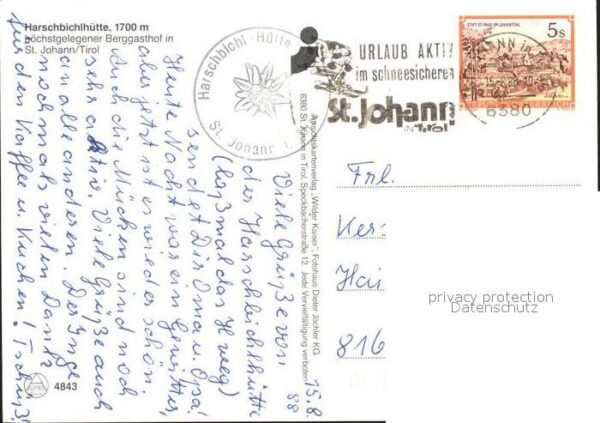 Harschbichlhütte, 1700 m
höchstgelegener Berggasthof in
St. Johann/Tirol
Harschbichl-Hütte
St. Johann i.
URLAUB AKTIV
im schneesicheren
St. Johann
IN TIROL
STIFT ST. PAUL IM LAVANTTAL
5s
REPUBLIK ÖSTERREICH
6380
15.8.88
Viele Grüße von
der Harschbichlhütte
(laß mal das H weg)
sendet Dir Oma u. Opa,
Heute Nacht war ein Gewitter,
aber jetzt ist es wieder schön
Auch die Mücken sind noch
sehr aktiv. Viele Grüße auch
an alle anderen. Der Inge
nochmals vielen Dank
für den Kaffee u. Kuchen! Tschüß!
Ansichtskartenverlag „Wilder Kaiser“, Fotohaus Dieter Jöchler KG
6380 St. Johann in Tirol, Speckbacherstraße 12. Jede Vervielfältigung verboten
Frl.
Ker
Hai
816
privacy protection
Datenschutz
4843